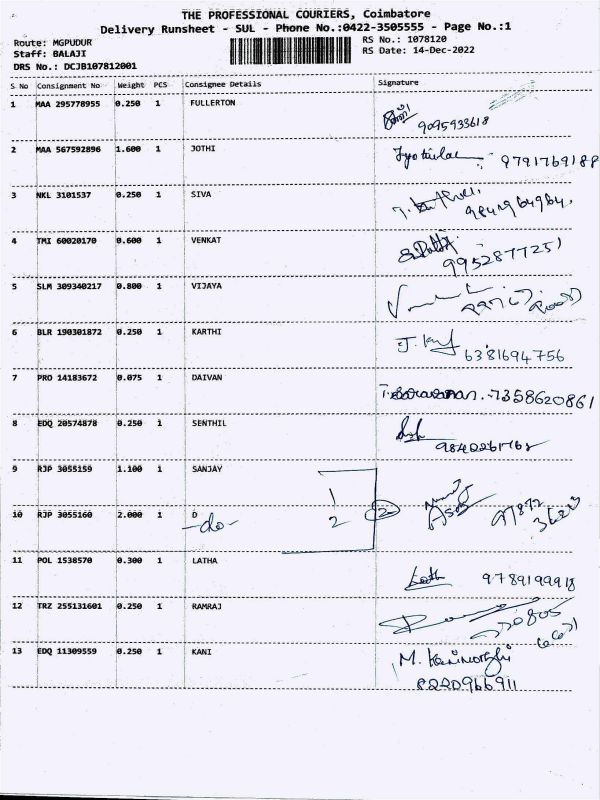 THE PROFESSIONAL COURIERS, Coimbatore
Delivery Runsheet - SUL - Phone No.:0422-3505555 - Page No.:1
Route: MGPUDUR
Staff: BALAJI
DRS No.: DCJB107812001
RS No.: 1078120
RS Date: 14-Dec-2022
S No Consignment No Weight PCS Consignee Details Signature
1 MAA 295778955 0.250 1 FULLERTON
9095933618
2 MAA 567592896 1.600 1 JOTHI
9791769188
3 NKL 3101537 0.250 1 SIVA
4 TMI 60020170 0.600 1 VENKAT
9952877251
5 SLM 309340217 0.800 1 VIJAYA
6 BLR 190301872 0.250 1 KARTHI
6381694756
7 PRO 14183672 0.075 1 DAIVAN
T. Saravanan. 7358620861
8 EDQ 20574878 0.250 1 SENTHIL
9 RJP 3055159 1.100 1 SANJAY
1
10 RJP 3055160 2.000 1 D
-do- 2 2
11 POL 1538570 0.300 1 LATHA
Latha 9789199918
12 TRZ 255131601 0.250 1 RAMRAJ
13 EDQ 11309559 0.250 1 KANI
M. Kanimozhi
8220966911